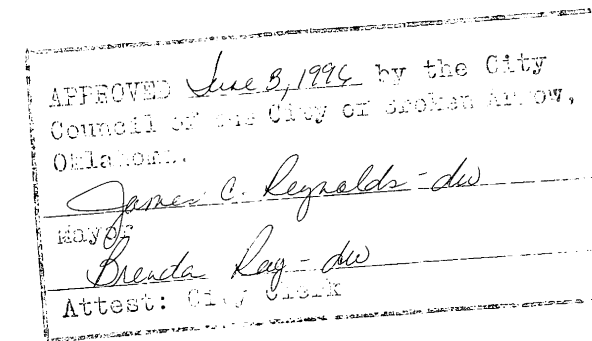 APPROVED June 3, 1996 by the City
Council of the City of Broken Arrow,
Oklahoma.
James C. Reynolds - dw
Mayor
Brenda Ray - dw
Attest: City Clerk